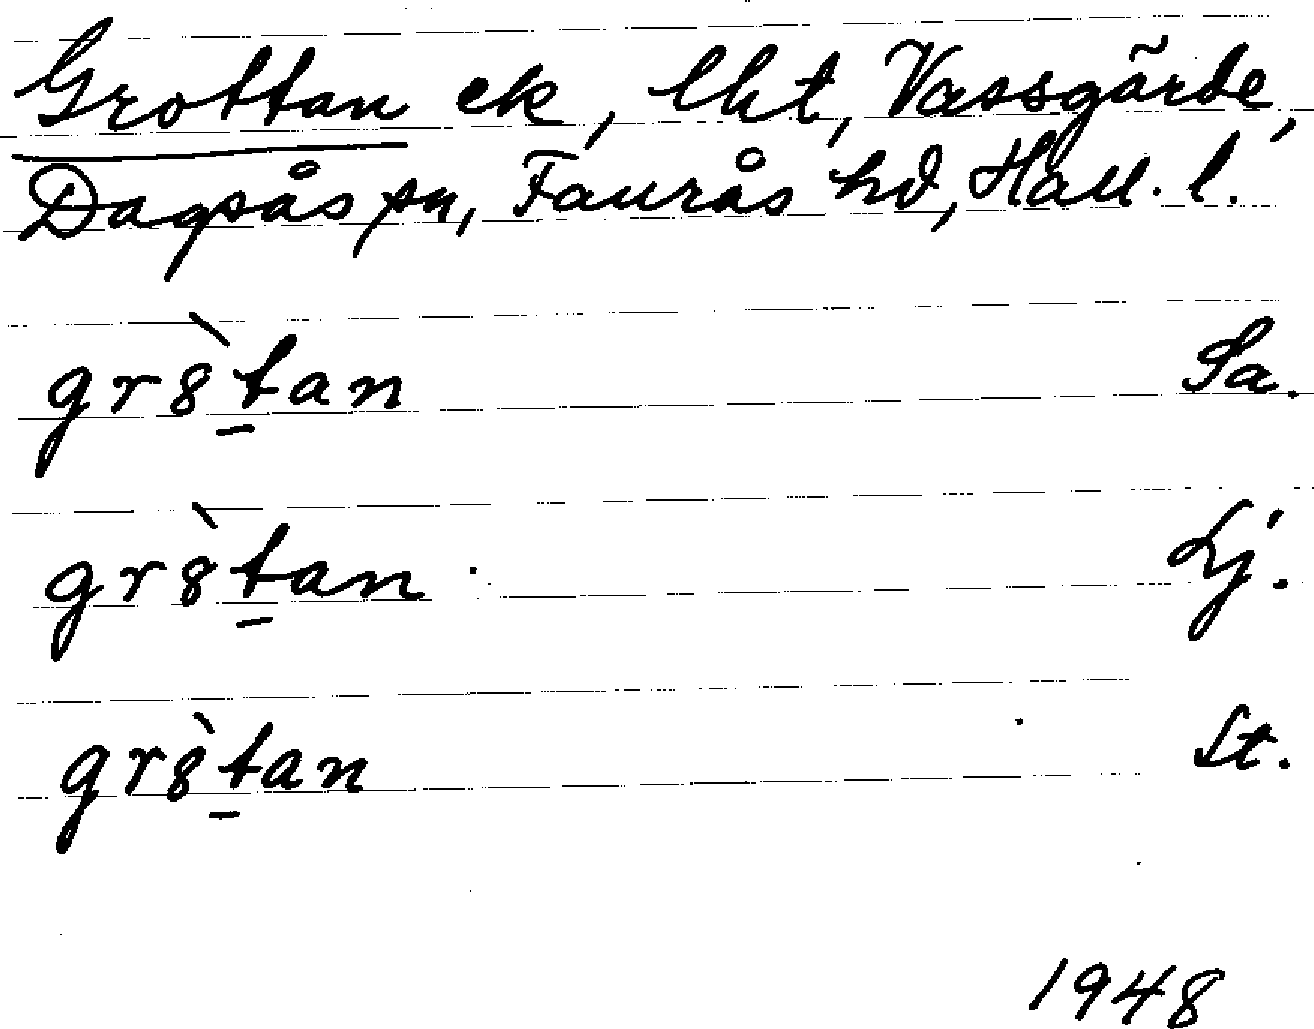 Grottan ek, lht, Vassgärde,
Dagsås sn, Faurås hd, Hall. l.
gr8̀t̲an Sa.
gr8̀t̲an Lj.
gr8̀t̲an St.
1948